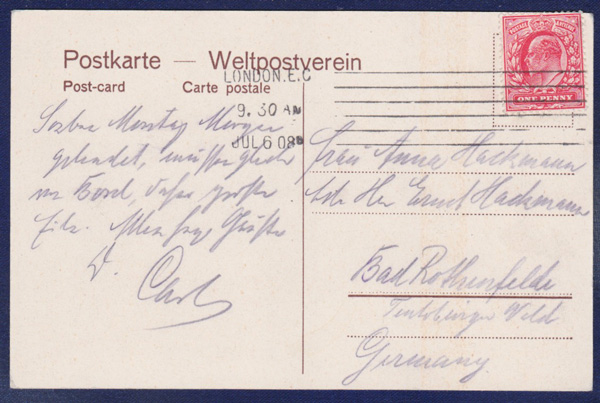 Postkarte — Weltpostverein
Post-card Carte postale
POSTAGE REVENUE
ONE PENNY
LONDON.E.C
9.30 AM
JUL 6 08
Montag Morgen
gelandet, müssen gleich
an Bord, daher größte
Eile. Grüße
D.
Carl
Frau Anna Hackmann
Adr Her Ernst Hackmann
Bad Rothenfelde
Teutoburger Wald
Germany